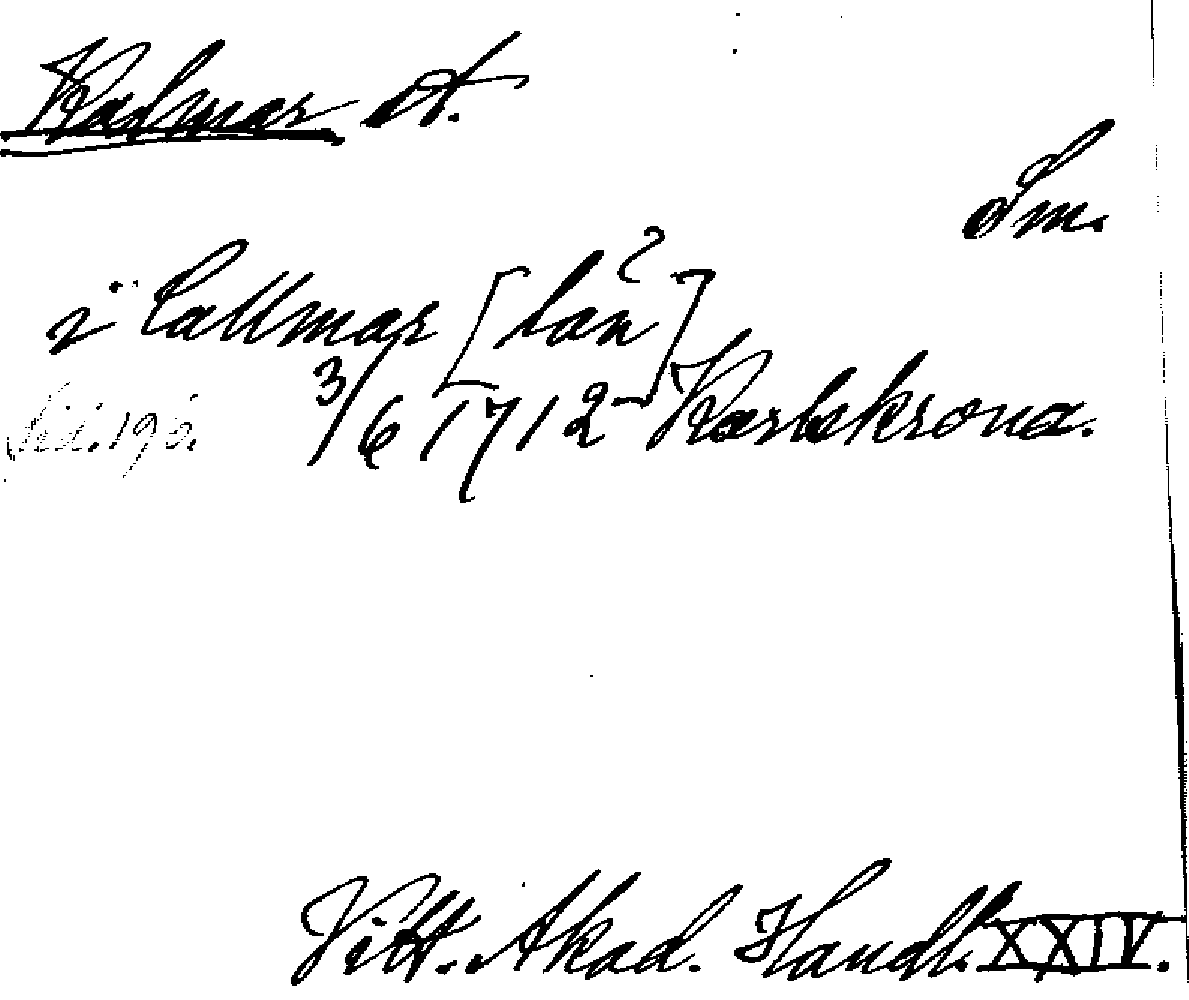 Kalmar st.
Sm.
i Callmar [län?]
sid. 190. 3/6 1712 Karlskrona.
Vitt. Akad. Handl. XXIV.